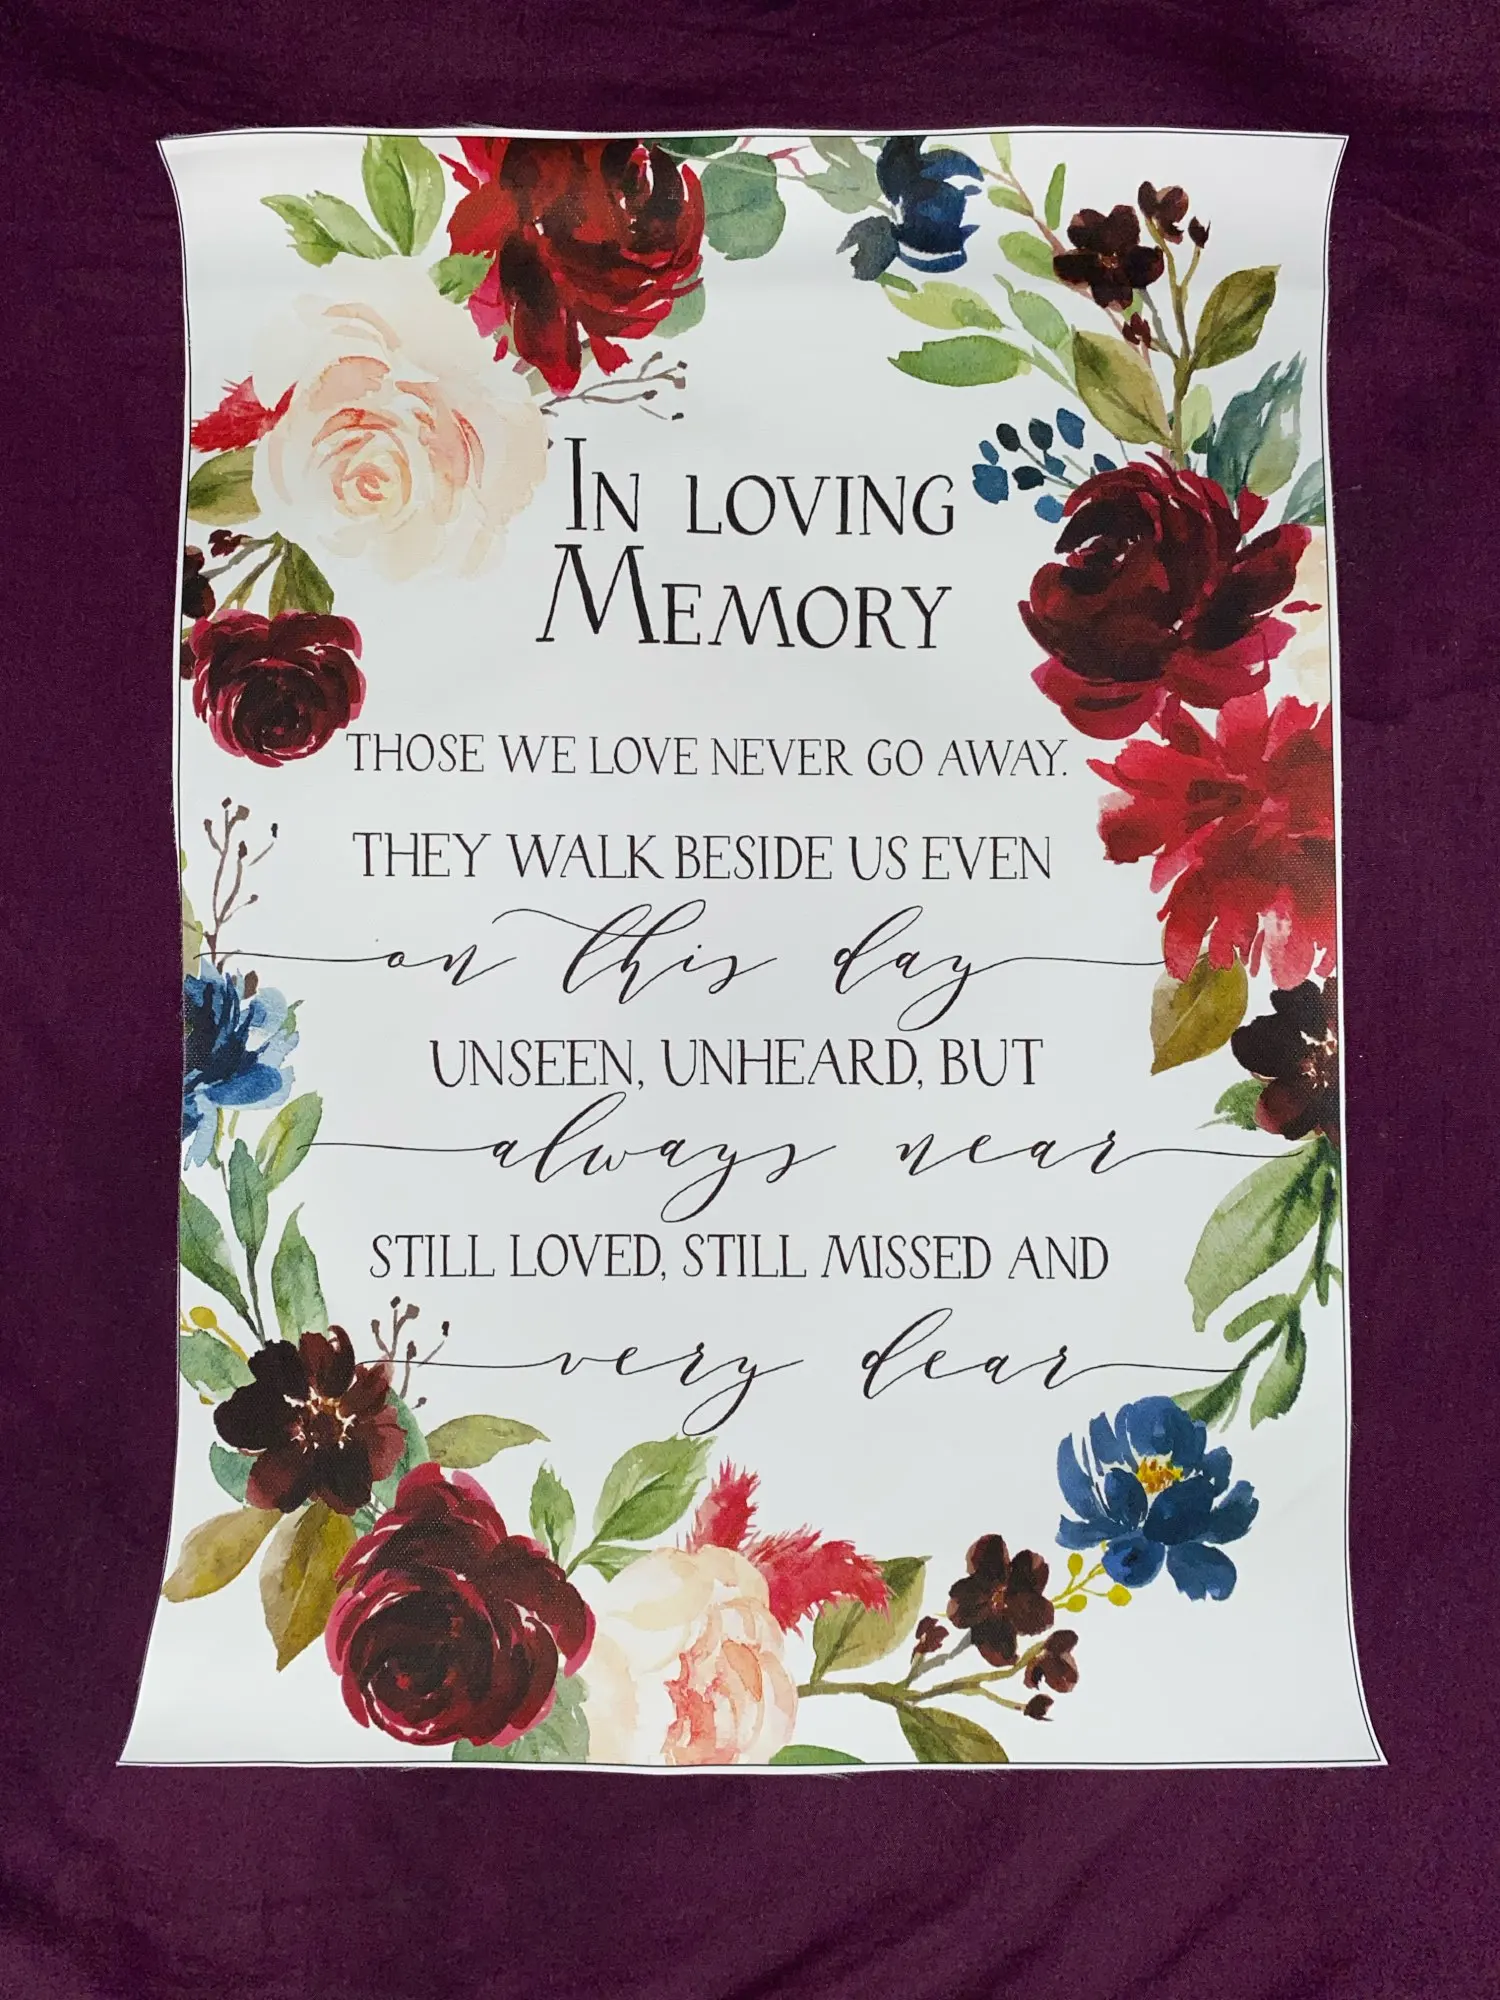 In loving
Memory
THOSE WE LOVE NEVER GO AWAY.
THEY WALK BESIDE US EVEN
on this day
UNSEEN, UNHEARD, BUT
always near
STILL LOVED, STILL MISSED AND
very dear